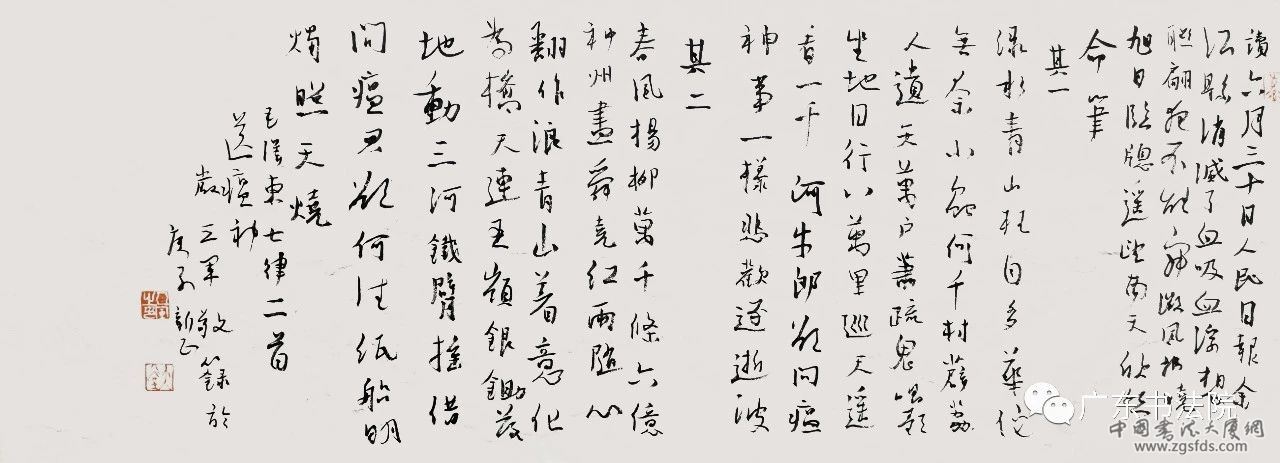 讀六月三十日人民日報余
江縣消滅了血吸血浮想
聯翩夜不能寐微風拂曉
旭日臨窗遥望南天欣然
命筆
其一
綠水青山枉自多華佗
無奈小蟲何千村薜荔
人遺矢萬户蕭疏鬼唱歌
坐地日行八萬里巡天遥
看一千河牛郎欲問瘟
神事一樣悲歡逐逝波
其二
春風楊柳萬千條六億
神州盡舜堯紅雨隨心
翻作浪青山着意化
為橋天連五嶺銀鋤落
地動三河鐵臂搖借
問瘟君欲何往紙船明
燭照天燒
毛澤東七律二首
送瘟神
敬錄於
庚子新正
广东书法院
中國書法大厦網
www.zgsfds.com